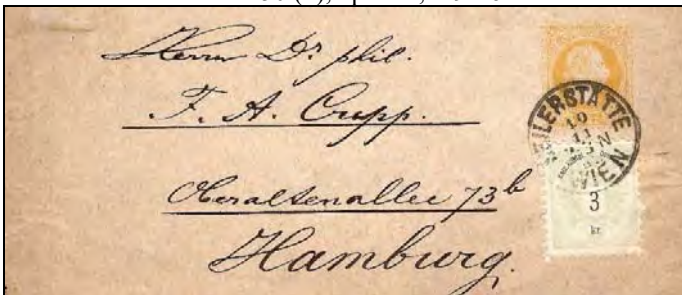 Herrn Dr phil.
F. A. Cupp.
Oberaltenallee 73b
Hamburg.
SEILERSTÄTTE
19
11
WIEN
3
kr.